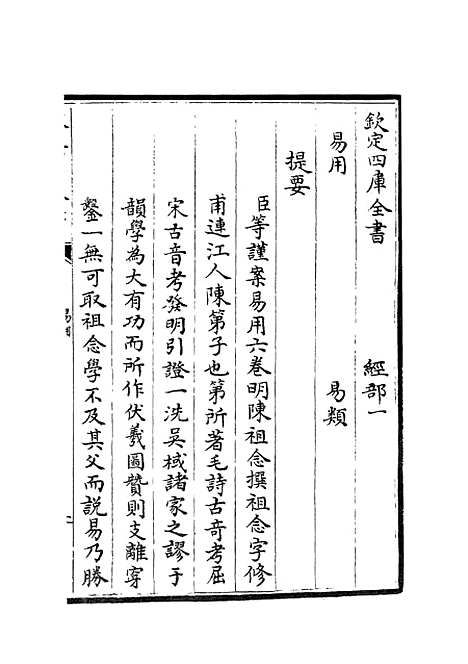 欽定四庫全書 經部一
易用 易類
提要
臣等謹案易用六卷明陳祖念撰祖念字修
甫連江人陳第子也第所著毛詩古音考屈
宋古音考發明引證一洗吳棫諸家之謬于
韻學為大有功而所作伏羲圖贊則支離穿
鑿一無可取祖念學不及其父而說易乃勝